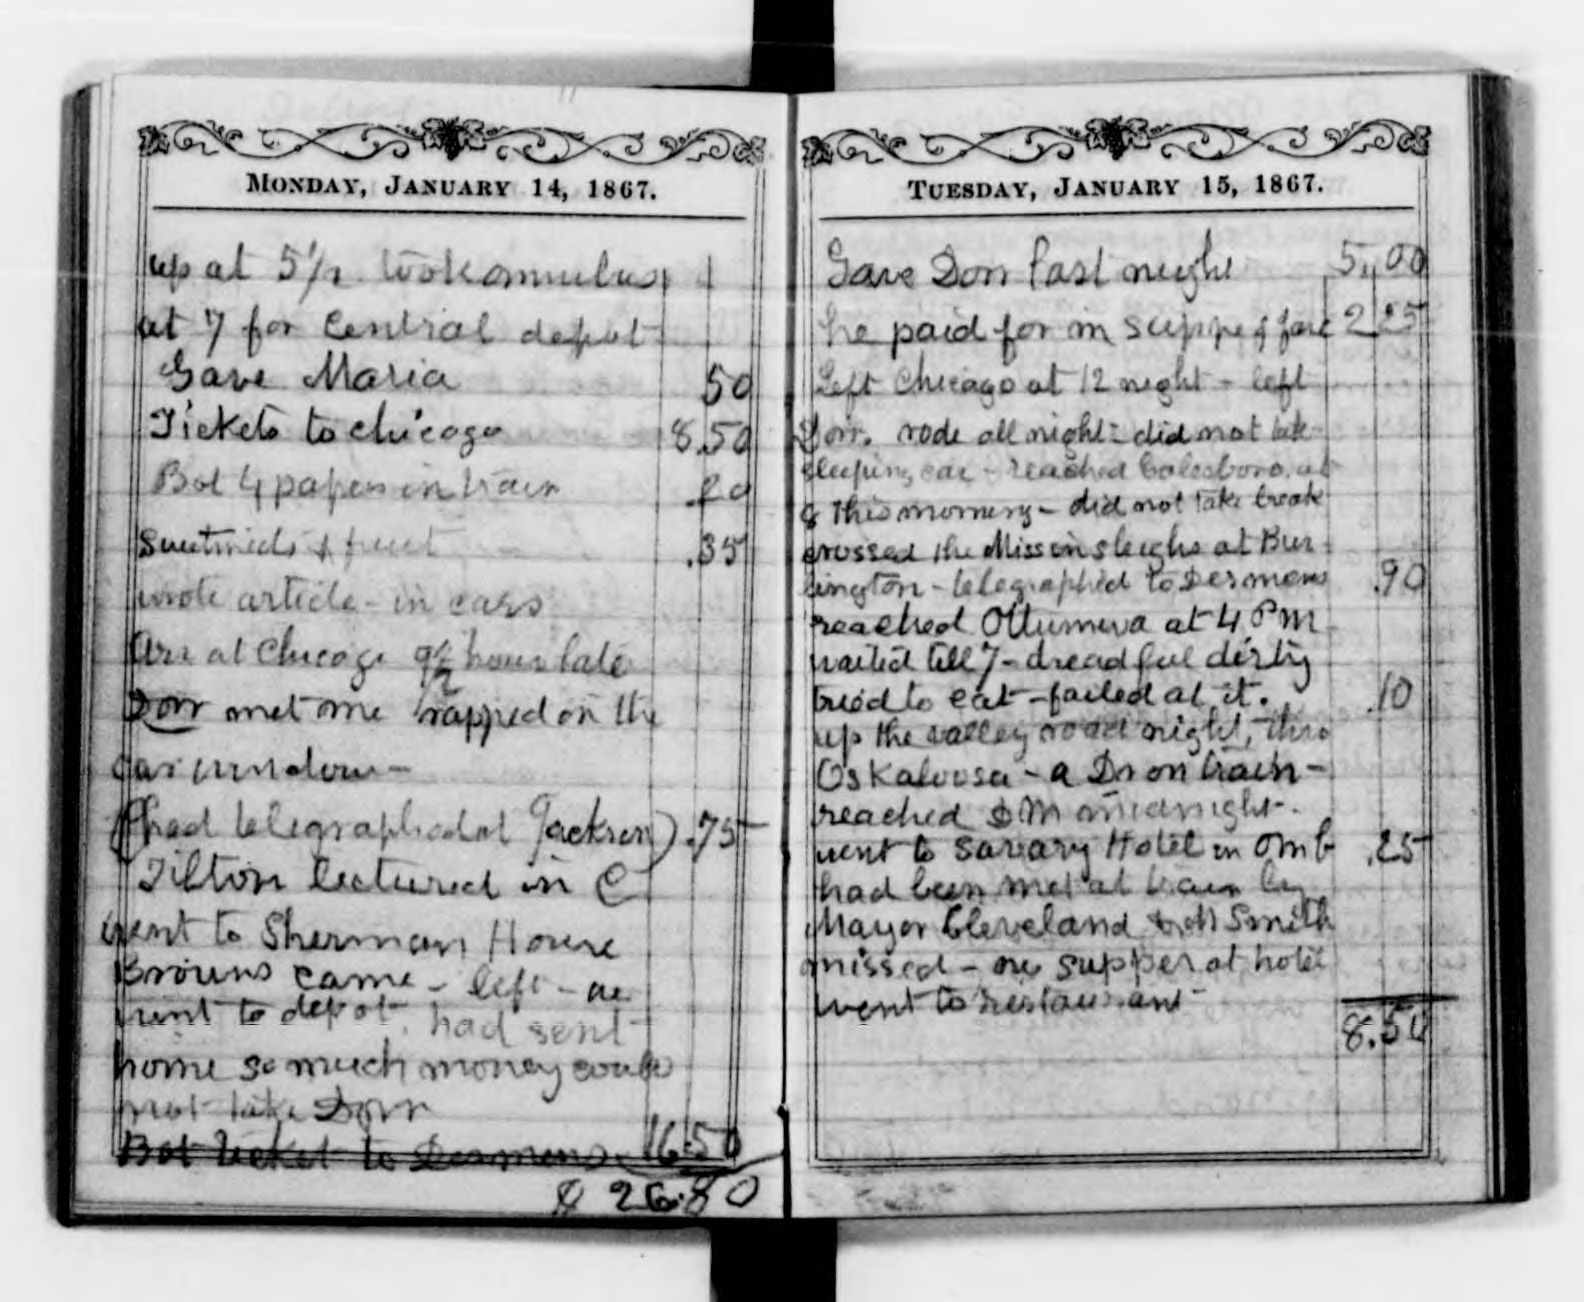 MONDAY, JANUARY 14, 1867.
up at 5 1/2 took omnibus
at 7 for Central depot
Gave Maria 50
Tickets to Chicago 8.50
Bot 4 papers in train .20
Sweetmeds & fruit .35
wrote article - in cars
Arr at Chicago hour late
Dorr met me rapped on the
car window -
(had telegraphed at Jackson) .75
Tilton lectured in C
went to Sherman House
Browns came - left - we
went to depot. had sent
home so much money could
not take Dorr
Bot ticket to Desmons 16.50
$ 26.80
TUESDAY, JANUARY 15, 1867.
Gave Dorr last night 5.00
he paid for m supper & fare 2 25
Left Chicago at 12 night - left
Dorr. rode all night - did not tak
sleeping car - reached Galesboro. at
8 this morning - did not take break
crossed the Miss in sleighs at Bur-
lington - telegraphed to Desmons .90
reached Ottumwa at 4 P m
waited till 7 - dreadful dirty
tried to eat - failed at it. .10
up the valley road night, thro
Oskaloosa - a Dr on train -
reached D M midnight.
went to Savary Hotel in Omb .25
had been met at train by
Mayor Cleveland Smith
missed - no supper at hotel
went to restaurant
8.50